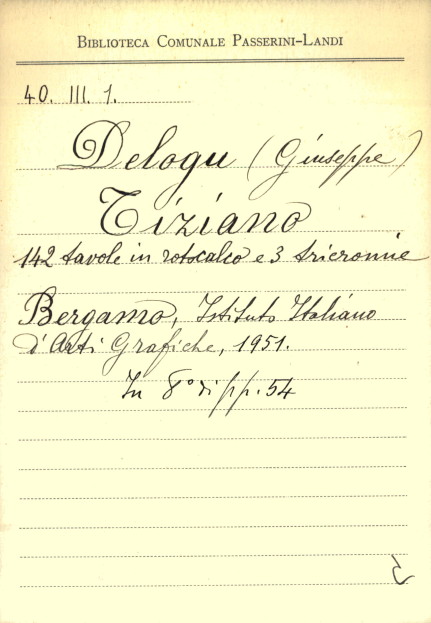 BIBLIOTECA COMUNALE PASSERINI-LANDI
40. III. 1.
Delogu (Giuseppe)
Tiziano
142 tavole in rotocalco e 3 tricromie
Bergamo, Istituto Italiano
d'Arti Grafiche, 1951.
In 8° di pp. 54